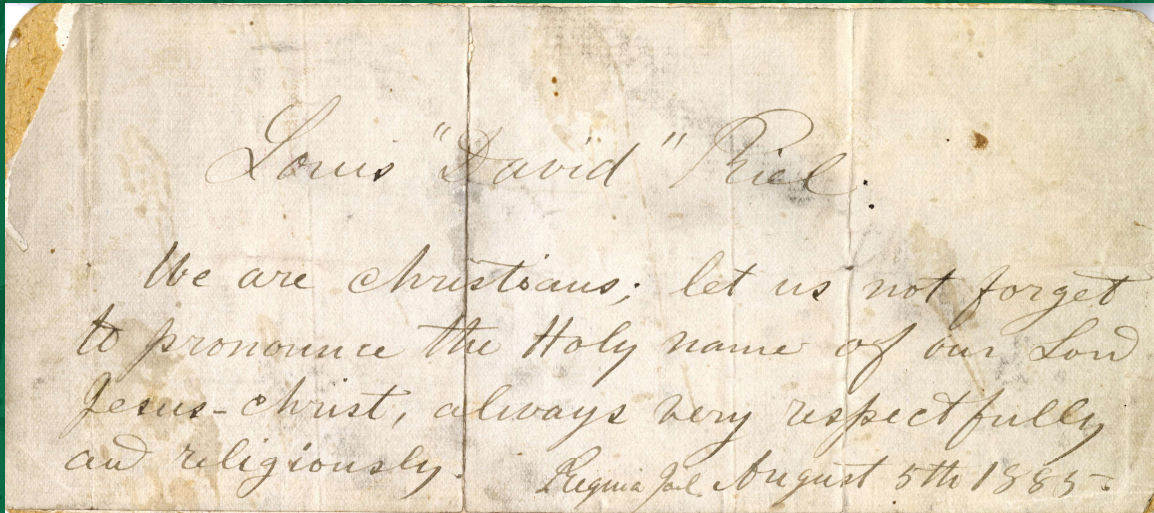 Louis "David" Riel.
We are christians; let us not forget
to pronounce the Holy name of our Lord
Jesus-christ, always very respectfully
and religiously. Regina Jail August 5th 1885.